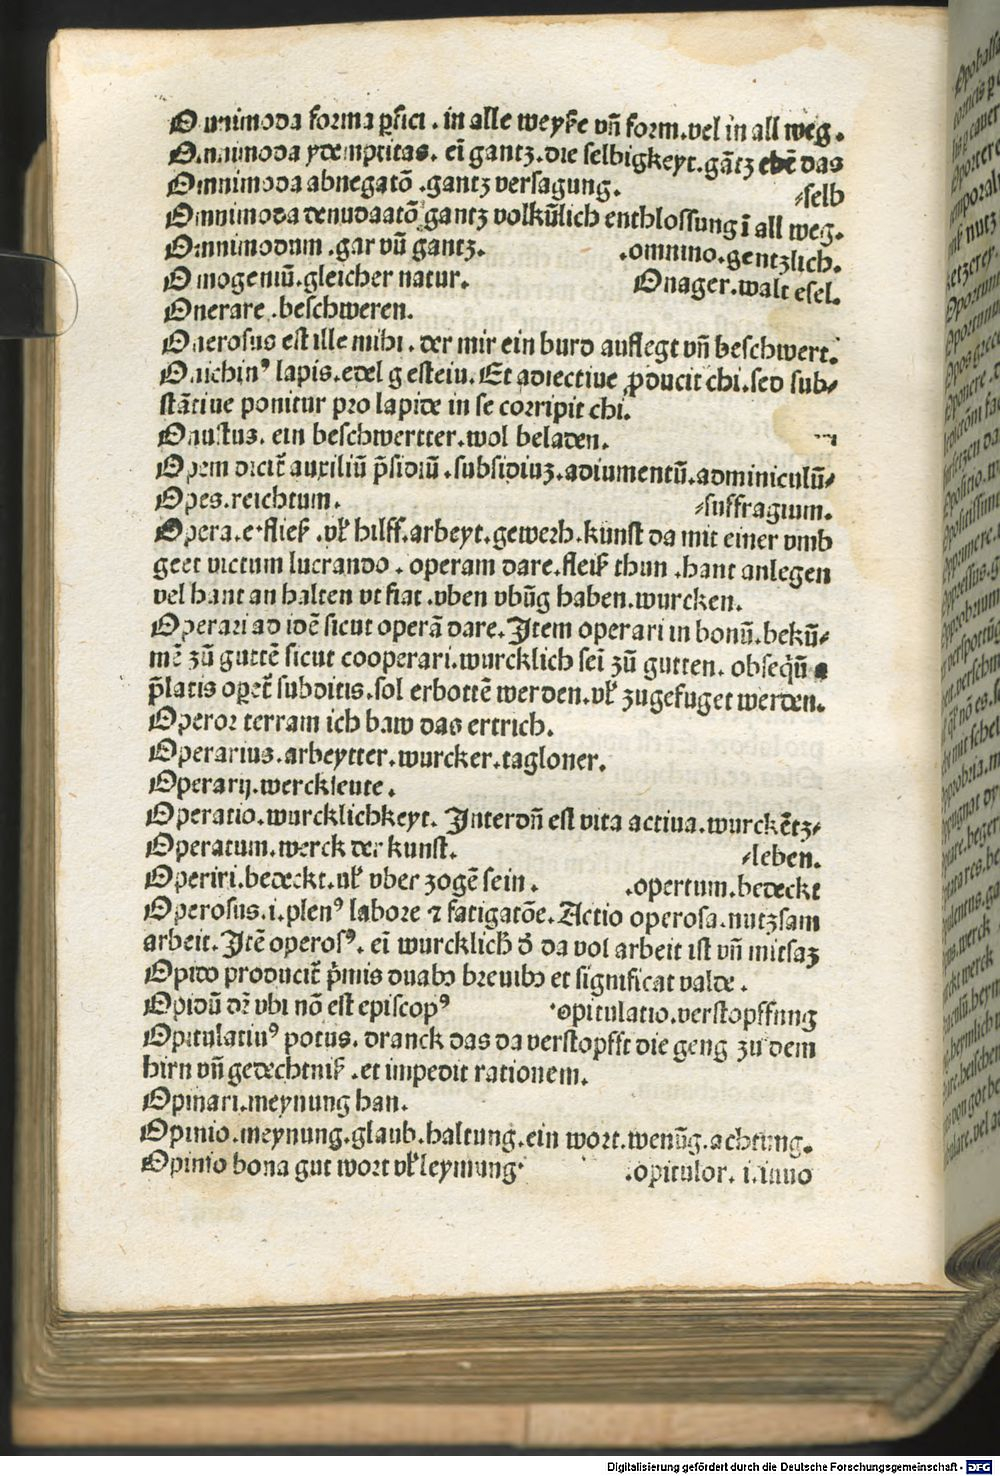 Omnimoda forma ꝑfici . in alle weyſe vñ form.vel in all weg.
Omnimoda ydemptitas. eī gantz.die ſelbigkeyt.gātz ebē das
Omnimoda abnegatō .gantz verſagung. ⸗ſelb
Omnimoda denudaatō gantz volkūlich enthloſſung ī all weg.
Omnimodum .gar vñ gantz. .omnino.gentzlich.
Omogeniū.gleicher natur. Onager.walt eſel.
Onerare .beſchweren.
Onerosus eſt ille mihi . der mir ein burd auflegt vñ beſchwert.
Onichinꝰ lapis.edel geſtein. Et adiectiue ꝓducit chi.ſed ſub⸗
ſtātiue ponitur pro lapide in ſe corripit chi.
Onuſtus. ein beſchwertter.wol beladen.
Opem dicit̄ auxiliū p̄ſidiū .ſubſidiuꝫ.adiumentū.adminiculū⸗
Opes.reichtum. ⸗ſuffragium.
Opera.e.fleiß .vſ hilff.arbeyt.gewerb.kunſt da mit einer vmb
geet victum lucrando . operam dare.fleiß thun .hant anlegen
vel hant an halten vt fiat .vben vbūg haben.wurcken.
Operari ad idē ſicut operā dare. Item operari in bonū.bekū⸗
mē zū guttē ſicut cooperari.wurcklich ſeī zū gutten. obſeq̄ū a
p̄latis oꝑet̄ ſubditis.ſol erbottē werden.vſ zugefuget werden.
Operor terram ich baw das ertrich.
Operarius.arbeytter.wurcker.tagloner.
Operarij.werckleute .
Operatio.wurcklichkeyt. Interdñ eſt vita actiua.wurckētz⸗
Operatum.werck der kunſt. ⸗leben.
Operiri.bedeckt.vſ vber zogē ſein . .opertum.bedeckt
Operoſus.i.plenꝰ labore ⁊ fatigatōe. Actio operoſa.nutzſam
arbeit. Itē operoſꝰ. eī wurcklich̄ d̄ da vol arbeit iſt vñ mitſaꝫ
Opido producit̄ p̄mis duabꝫ breuibꝫ et ſignificat valde .
Opidū dꝛ̄ vbi nō eſt epiſcopꝰ .opitulatio.verſtopffung
Opitulatiuꝰ potus. dranck das da verſtopfft die geng zu dem
hirn vñ gedechtniß .et impedit rationem.
Opinari.meynung han.
Opinio.meynung.glaub.haltung.ein wort.wenūg.achtung.
Opinio bona gut wort vſ leymung. .opitulor. i.iuuo
Digitalisierung gefördert durch die Deutsche Forschungsgemeinschaft - DFG